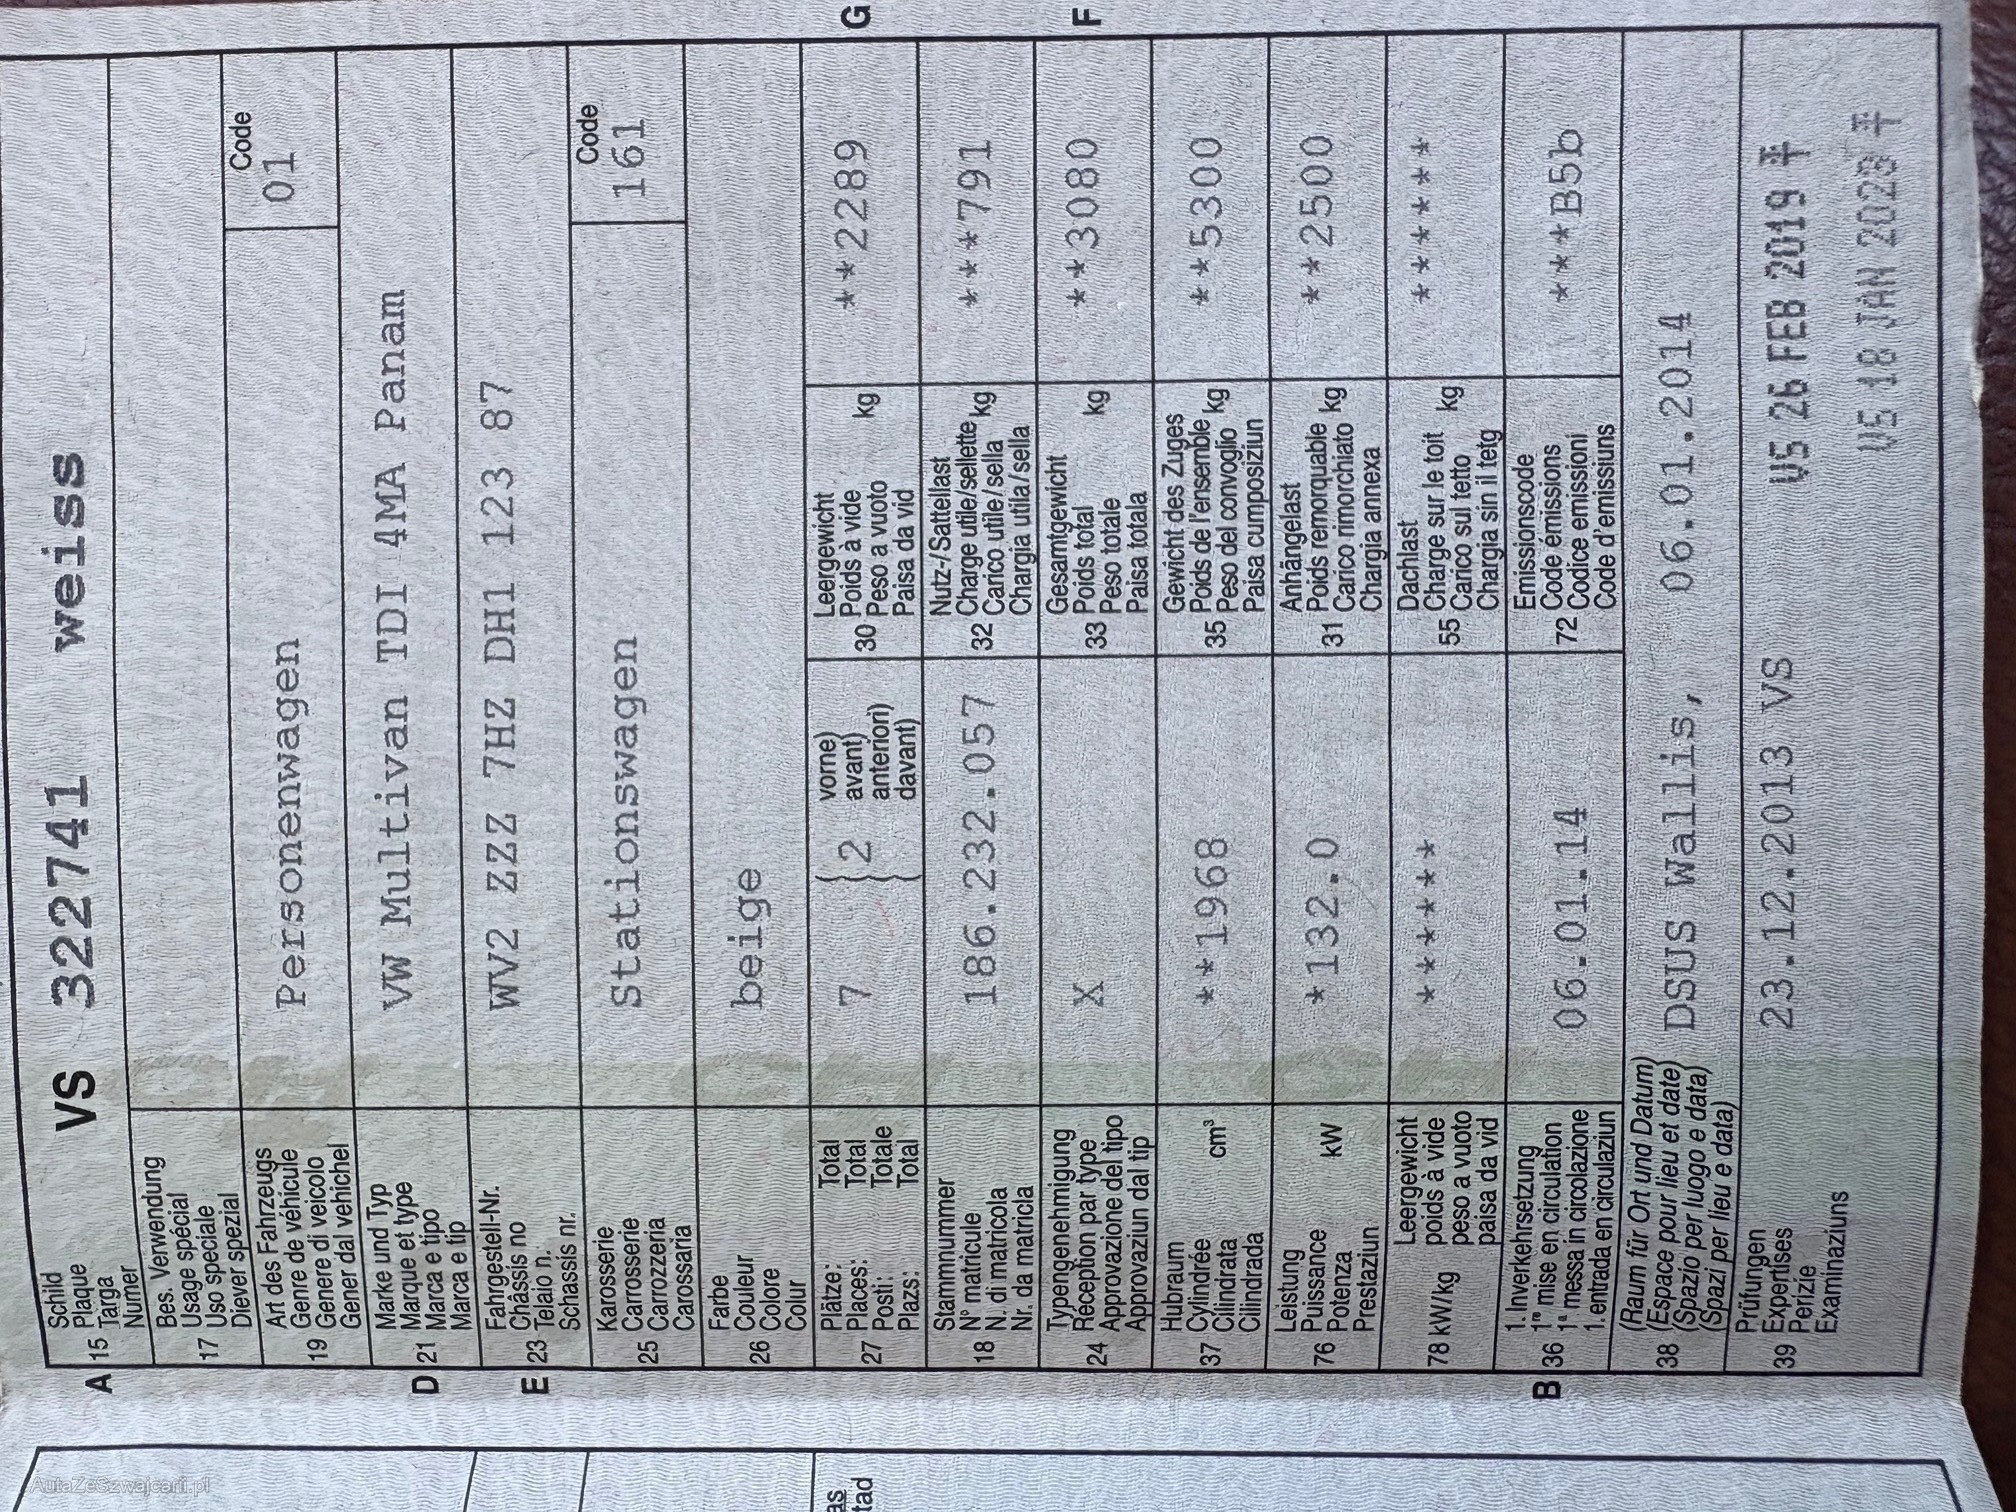 A 15 Schild Plaque Targa Numer VS 322741 weiss
17 Bes. Verwendung
Usage spécial
Uso speciale
Diever spezial
19 Art des Fahrzeugs
Genre de véhicule
Genere di veicolo
Gener dal vehichel
Personenwagen
Code
01
D 21 Marke und Typ
Marque et type
Marca e tipo
Marca e tip
VW Multivan TDI 4MA Panam
E 23 Fahrgestell-Nr.
Châssis no
Telaio n.
Schassis nr.
WV2 ZZZ 7HZ DH1 123 87
25 Karosserie
Carrosserie
Carrozzeria
Carossaria
Stationswagen
Code
161
26 Farbe
Couleur
Colore
Colur
beige
27 Plätze: Total
Places: Total
Posti: Totale
Plazs: Total
7
2
vorne)
avant)
anteriori)
davant)
30 Leergewicht
Poids à vide
Peso a vuoto kg
Paisa da vid
**2289
G
18 Stammnummer
N° matricule
N. di matricola
Nr. da matricla
186.232.057
32 Nutz-/Sattellast
Charge utile/sellette
Carico utile/sella kg
Chargia utila/sella
***791
24 Typengenehmigung
Réception par type
Approvazione del tipo
Approvaziun dal tip
X
33 Gesamtgewicht
Poids total
Peso totale kg
Paisa totala
**3080
F
37 Hubraum
Cylindrée
Cilindrata cm³
Cilindrada
**1968
35 Gewicht des Zuges
Poids de l'ensemble
Peso del convoglio kg
Paisa cumposiziun
**5300
76 Leistung
Puissance
Potenza kW
Prestaziun
*132.0
31 Anhängelast
Poids remorquable
Carico rimorchiato kg
Chargia annexa
**2500
78 kW/kg Leergewicht
poids à vide
peso a vuoto
paisa da vid
******
55 Dachlast
Charge sur le toit
Carico sul tetto kg
Chargia sin il tetg
******
B 36 1. Inverkehrsetzung
1re mise en circulation
1a messa in circolazione
1. entrada en circulaziun
06.01.14
72 Emissionscode
Code émissions
Codice emissioni
Code d'emissiuns
***B5b
38 (Raum für Ort und Datum)
(Espace pour lieu et date)
(Spazio per luogo e data)
(Spazi per lieu e data)
DSUS Wallis, 06.01.2014
39 Prüfungen
Expertises
Perizie
Examinaziuns
23.12.2013 VS
VS 26 FEB 2019
VS 18 JAN 2023
as
tad
AutaZeSzwajcarii.pl